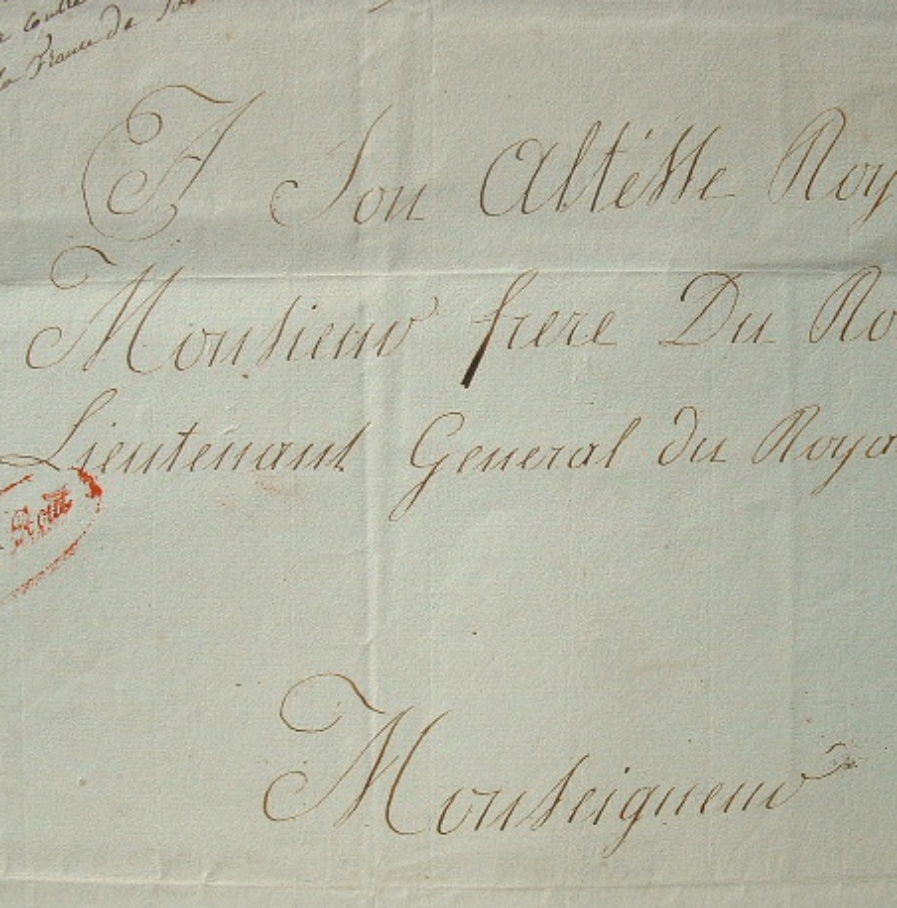 la France de
A Son Altésse Roy
Monsieur frere Du Ro
Lieutenant General du Roya
Monseigneur